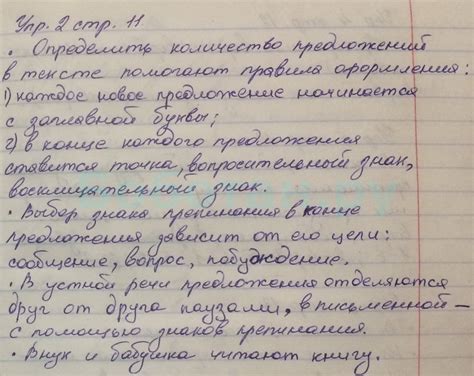 Упр. 2 стр. 11
• Определить количество предложений
в тексте помогают правила оформления:
1) каждое новое предложение начинается
с заглавной буквы;
2) в конце каждого предложения
ставится точка, вопросительный знак,
восклицательный знак.
• Выбор знака препинания в конце
предложения зависит от его цели:
сообщение, вопрос, побуждение.
• В устной речи предложения отделяются
друг от друга паузами, в письменной –
с помощью знаков препинания.
• Внук и бабушка читают книгу.